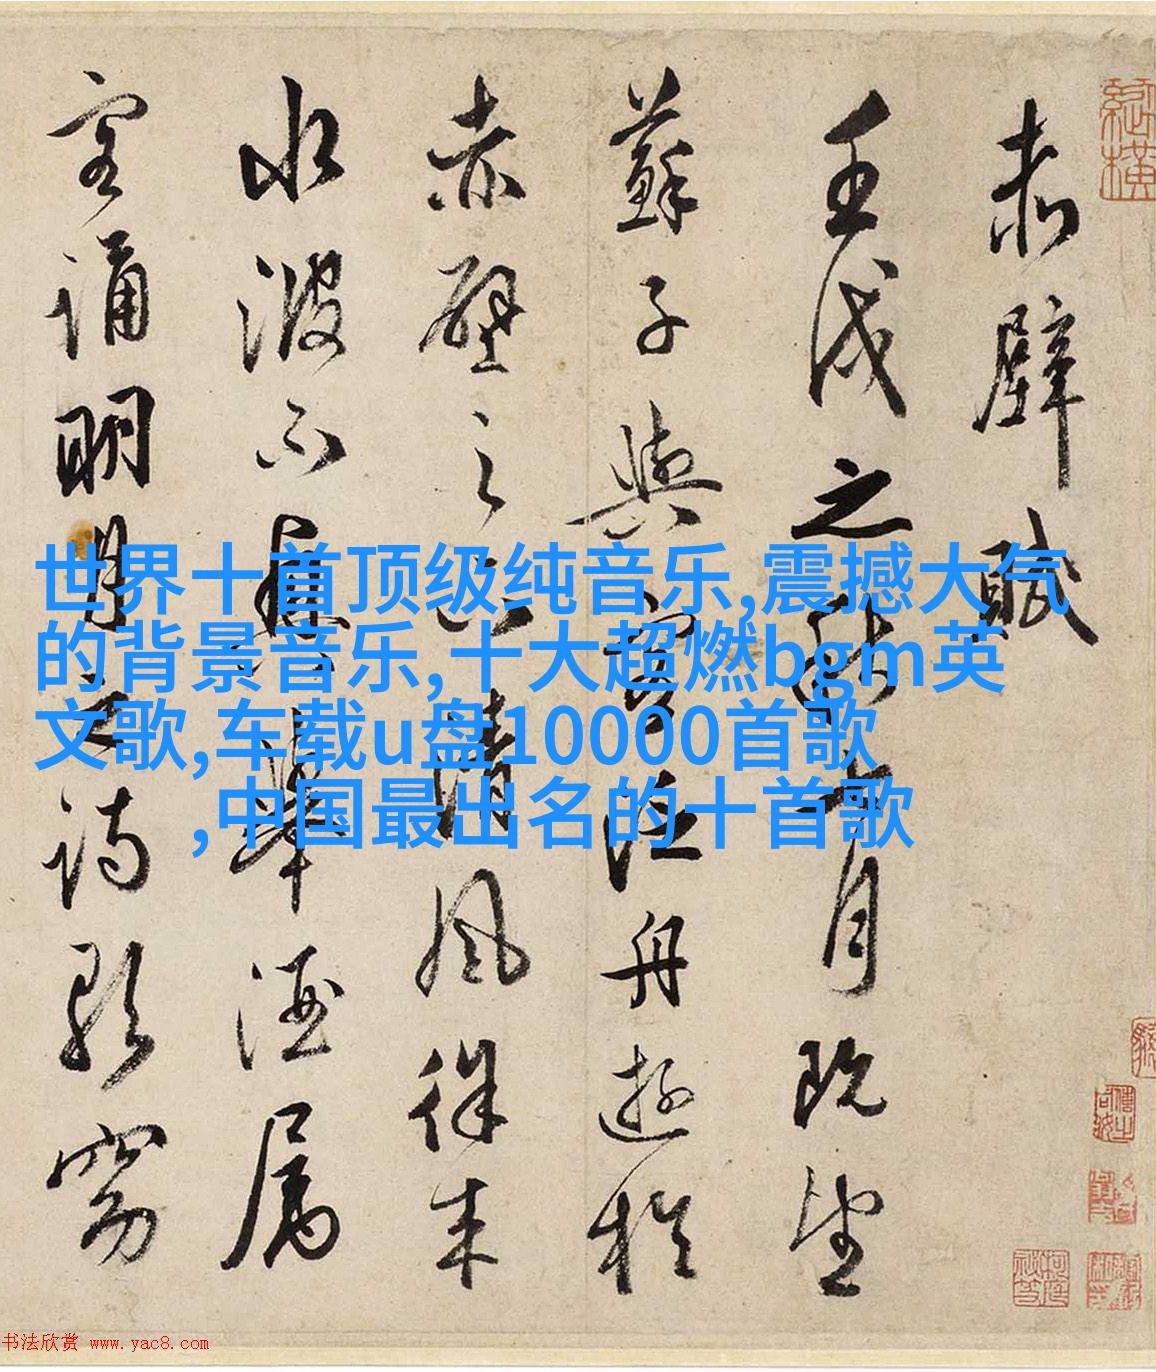 赤壁賦
壬戌之秋七月既望
蘇子與客泛舟遊於
赤壁之下清風徐来
水波不興舉酒屬
客誦明月之詩歌窈
世界十首顶级纯音乐,震撼大气
的背景音乐,十大超燃bgm英
文歌,车载u盘10000首歌
,中国最出名的十首歌
书法欣赏 www.yac8.com